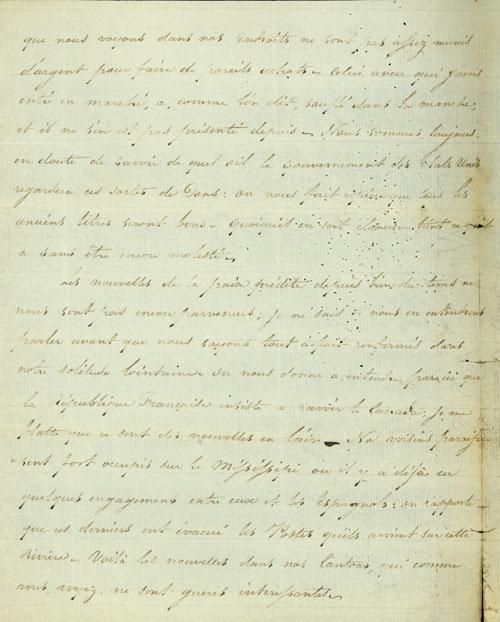 que nous voyons dans nos endroits ne sont pas assez munis
d'argent pour faire de pareils achats. Celui avec qui j'avois
entré en marché, a, comme l'on dit, soufflé dans la manche,
et il ne s'en est pas présenté depuis. Nous sommes toujours
en doute de savoir de quel œil le Gouvernement des Etats Unis
regardera ces sortes de Dons: on nous fait espérer que tous les
anciens titres seront bons. Quoiqu'il en soit chacun tient ce qu'il
a sans être encore molesté.
Les nouvelles de la paix prédite depuis bien du tems ne
nous sont pas encore parvenues, je ne sais si nous en entendrons
parler avant que nous soyons tout à fait renfermés dans
notre solitude lointaine. On nous donne à entendre par ici que
la République Françoise insiste a ravoir le Canada; je me
flatte que ce sont des nouvelles en l'air. Nos voisins parois
sent fort occupés sur le Mississipi ou il y a déjà eu
quelques engagemens entre eux et les Espagnols: on rapporte
que ces derniers ont évacué les Postes qu'ils avoient sur cette
Rivière. Voilà les nouvelles dans nos Cantons, qui comme
vous voyez ne sont gueres interessantes.